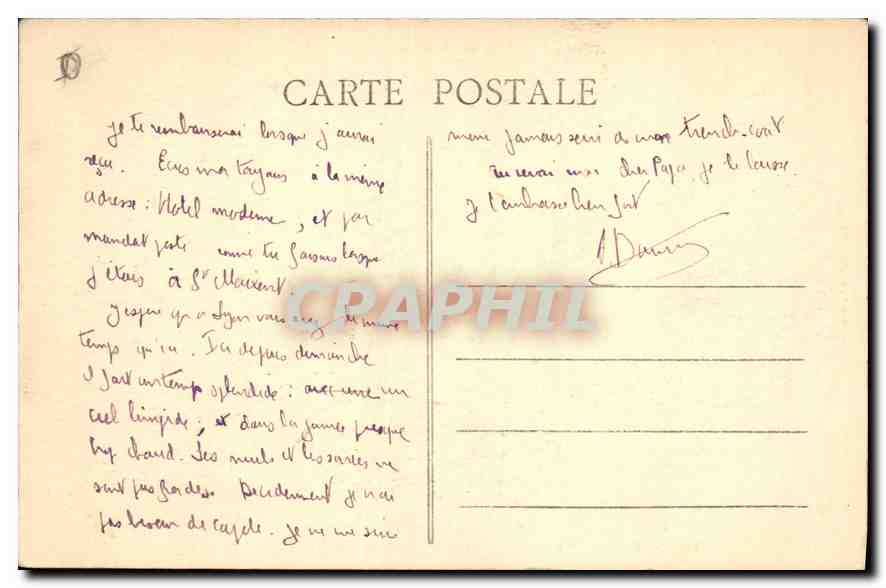 CARTE POSTALE
je te rembourserai lorsque j'aurai
reçu. Ecris moi toujours à la même
adresse : Hotel moderne, et par
mandat poste comme tu faisais lorsque
j'étais à St Maixent.
J'espère qu'a Lyon vous avez le même
temps qu'ici. Ici depuis dimanche
il fait un temps splendide : avec un
ciel limpide ; et dans la journée presque
trop chaud. Les nuits et les soirées ne
sont pas froides. Décidement je n'ai
pas besoin de capote. Je ne me suis
même jamais servi de mon trench-coat
mon cher Papa, je te laisse.
Je t'embrasse bien fort
CPAPHIL